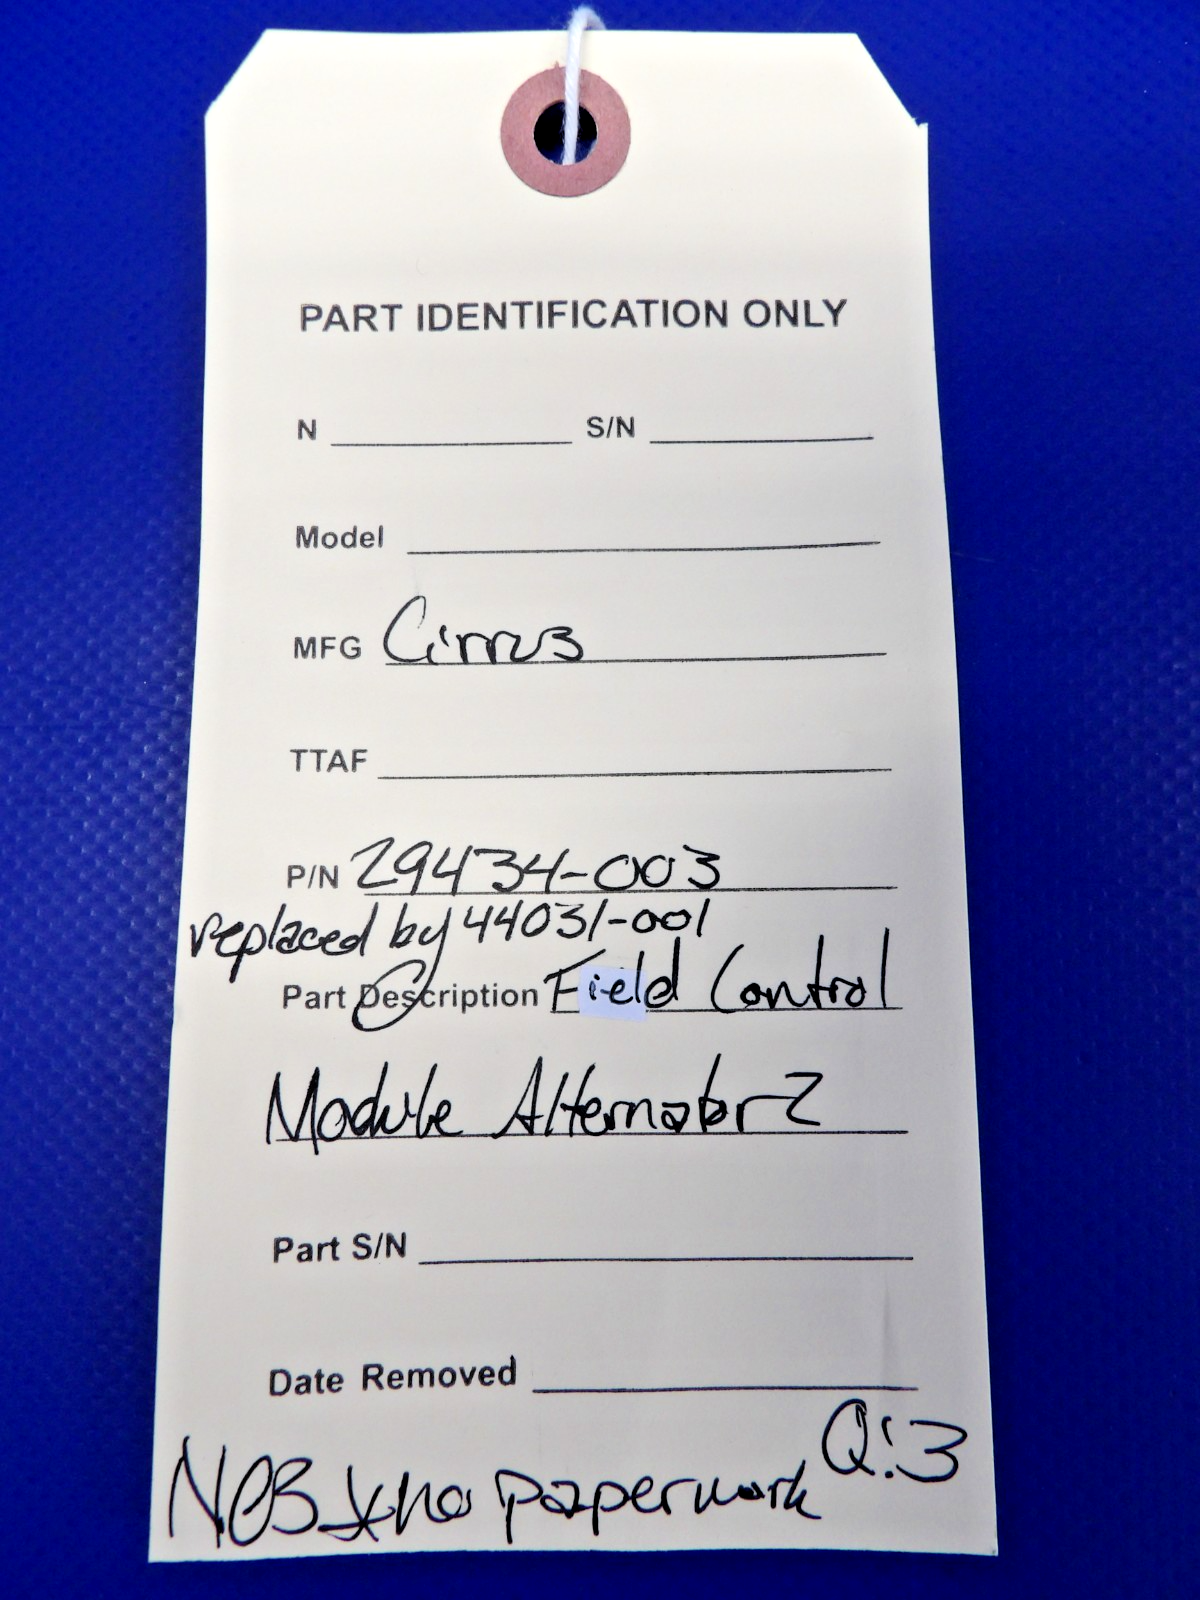 PART IDENTIFICATION ONLY
N S/N
Model
MFG Cirrus
TTAF
P/N 29434-003
replaced by 44031-001
Part Description Field Control
Module Alternator 2
Part S/N
Date Removed
Q:3
NOS * no paperwork